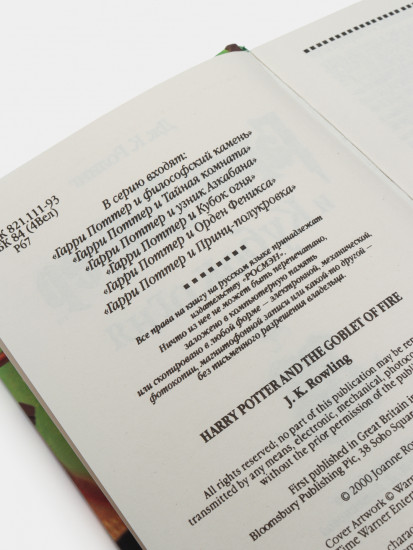 К 821.111-93
БК 84 (4Вел)
Р67
В серию входят:
«Гарри Поттер и философский камень»
«Гарри Поттер и Тайная комната»
«Гарри Поттер и узник Азкабана»
«Гарри Поттер и Кубок огня»
«Гарри Поттер и Орден Феникса»
«Гарри Поттер и Принц-полукровка»
Все права на книгу на русском языке принадлежат
издательству «РОСМЭН».
Ничто из нее не может быть перепечатано,
заложено в компьютерную память
или скопировано в любой форме — электронной, механической,
фотокопии, магнитофонной записи или какой-то другой —
без письменного разрешения владельца.
HARRY POTTER AND THE GOBLET OF FIRE
J. K. Rowling
All rights reserved; no part of this publication may be re
transmitted by any means, electronic, mechanical, photoc
without the prior permission of the publi
First published in Great Britain i
Bloomsbury Publishing Plc, 38 Soho Squar
© 2000 Joanne Ro
Cover Artwork © Warn
ime Warner Enter
charac